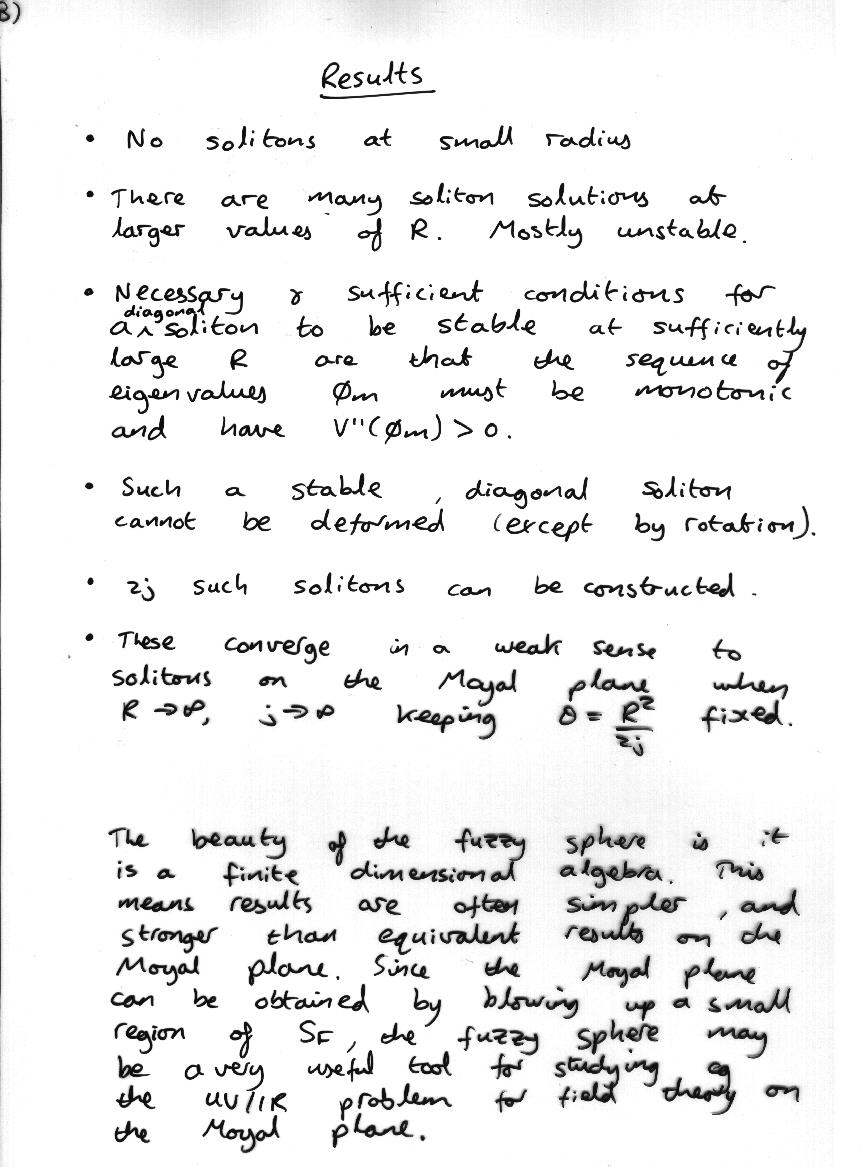 8)
Results
• No solitons at small radius
• There are many soliton solutions at
larger values of R. Mostly unstable.
• Necessary & sufficient conditions for
a ^ diagonal soliton to be stable at sufficiently
large R are that the sequence of
eigenvalues ϕm must be monotonic
and have V''(ϕm) > 0.
• Such a stable, diagonal soliton
cannot be deformed (except by rotation).
• 2j such solitons can be constructed.
• These converge in a weak sense to
solitons on the Moyal plane when
R → ∞, j → ∞ keeping θ = R²/2j fixed.
The beauty of the fuzzy sphere is it
is a finite dimensional algebra. This
means results are often simpler, and
stronger than equivalent results on the
Moyal plane. Since the Moyal plane
can be obtained by blowing up a small
region of SF, the fuzzy sphere may
be a very useful tool for studying eg
the UV/IR problem for field theory on
the Moyal plane.